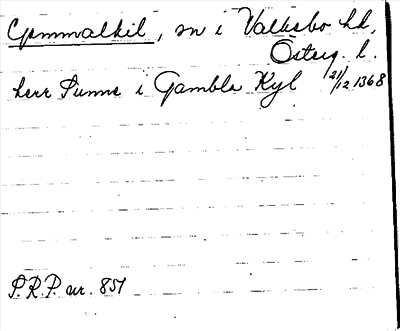 Gammalkil, sn i Valkebo hd,
Österg. l.
herr Sunne i Gamble Kyl 21/12 1368
S.R.P. nr. 851